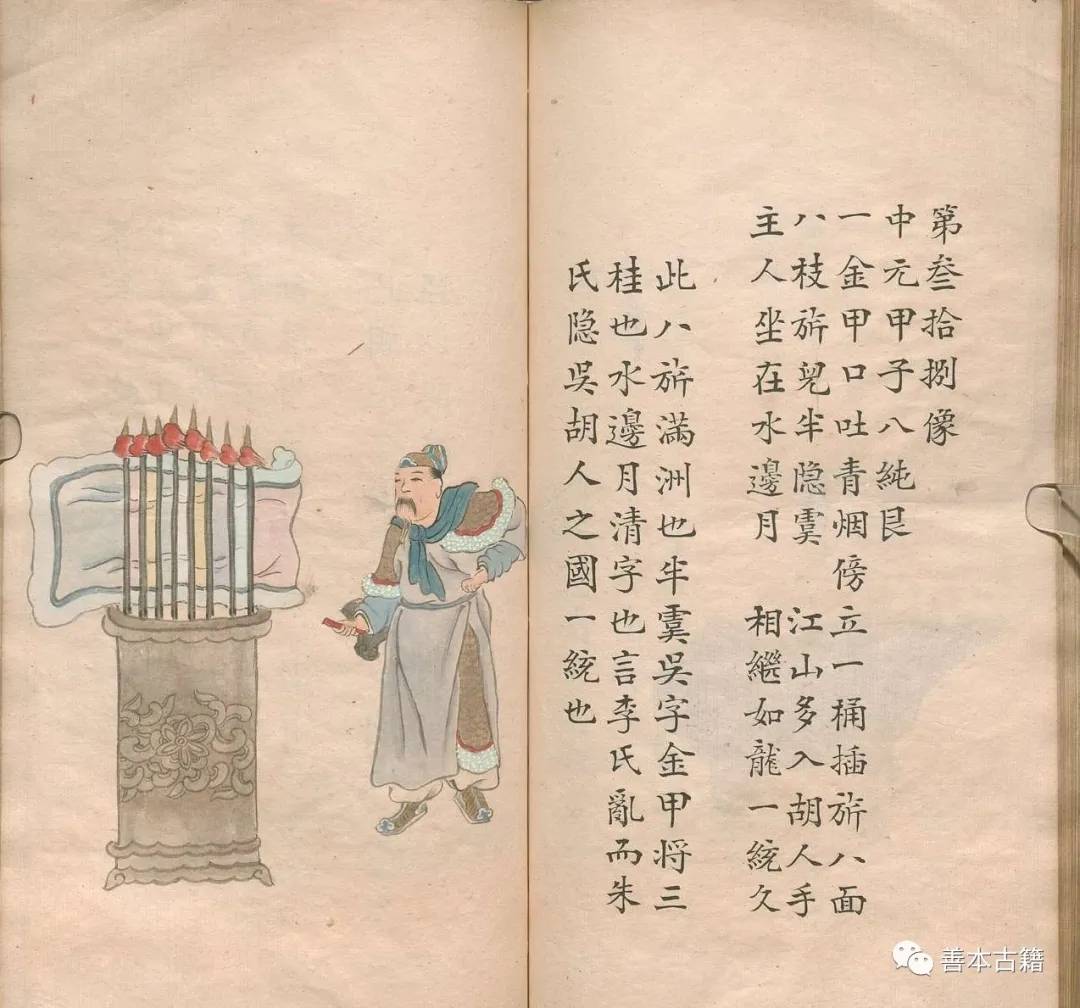 第叁拾捌像
中元甲子八純艮
一金甲口吐青烟傍立一桶插旂八面
八枝旂兒半隐虞 江山多入胡人手
主人坐在水邊月 相繼如龍一統久
此八旂滿洲也半虞吳字金甲将三
桂也水邊月清字也言李氏亂而朱
氏隐吳胡人之國一統也
善本古籍